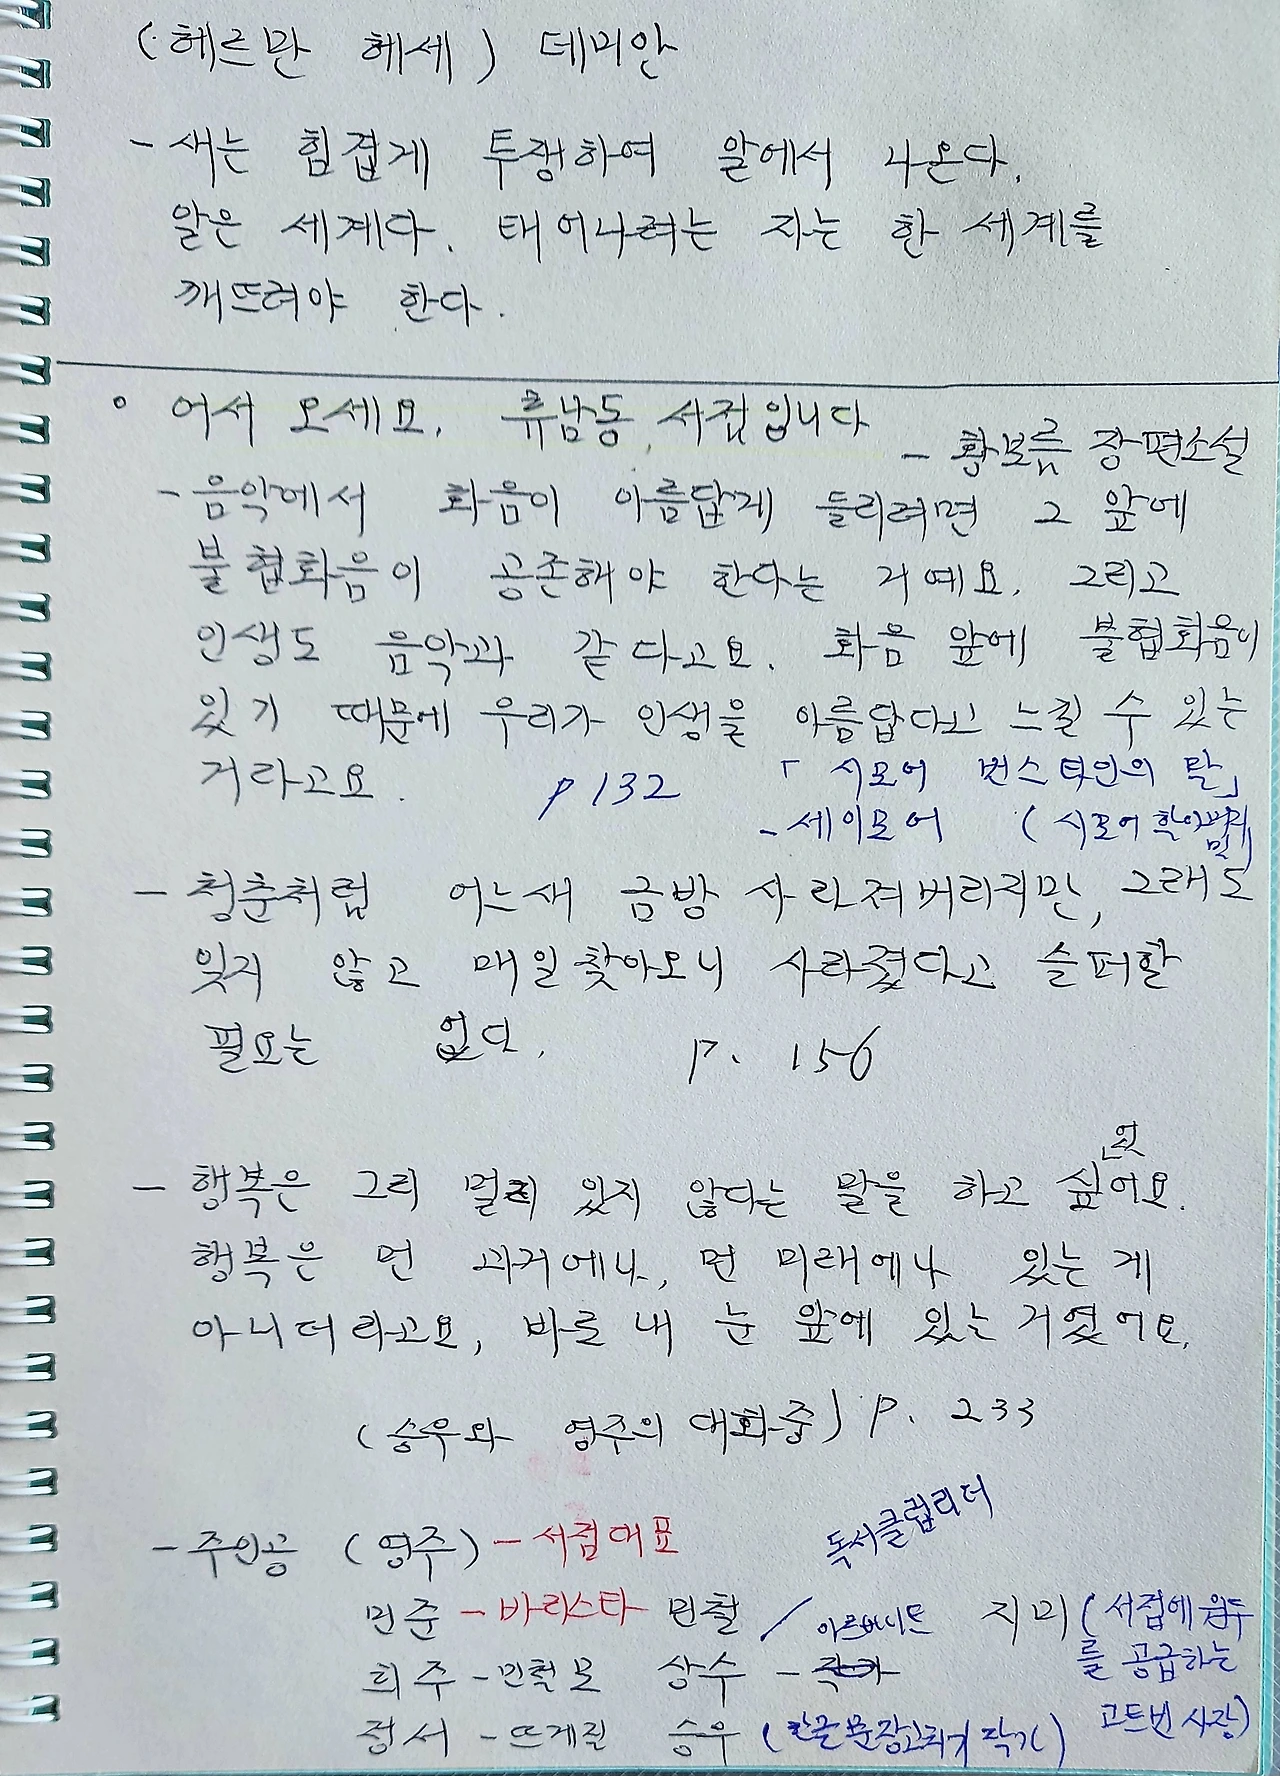 (헤르만 헤세) 데미안
- 새는 힘겹게 투쟁하여 알에서 나온다.
알은 세계다. 태어나려는 자는 한 세계를
깨뜨려야 한다.
° 어서 오세요. 휴남동 서점입니다
- 황보름 장편소설
- 음악에서 화음이 아름답게 들리려면 그 앞에
불협화음이 공존해야 한다는 거예요. 그리고
인생도 음악과 같다고요. 화음 앞에 불협화음이
있기 때문에 우리가 인생을 아름답다고 느낄 수 있는
거라고요. p 132 「시모어 번스타인의 말」
- 세이모어 (시모어
- 청춘처럼 어느새 금방 사라져버리지만, 그래도
잊지 않고 매일 찾아오니 사라졌다고 슬퍼할
필요는 없다. p. 156
- 행복은 그리 멀리 있지 않다는 말을 하고 싶었어요.
행복은 먼 과거에나, 먼 미래에나 있는 게
아니더라고요, 바로 내 눈 앞에 있는 거였어요.
(승우와 영주의 대화중) P. 233
- 주인공 (영주) - 서점대표 독서클럽리더
민준 - 바리스타 민철 / 지미 (서점에 원두
희주 - 민철모 상수 - 를 공급하는
정서 - 뜨게질 승우 ( 고트빈 사장)